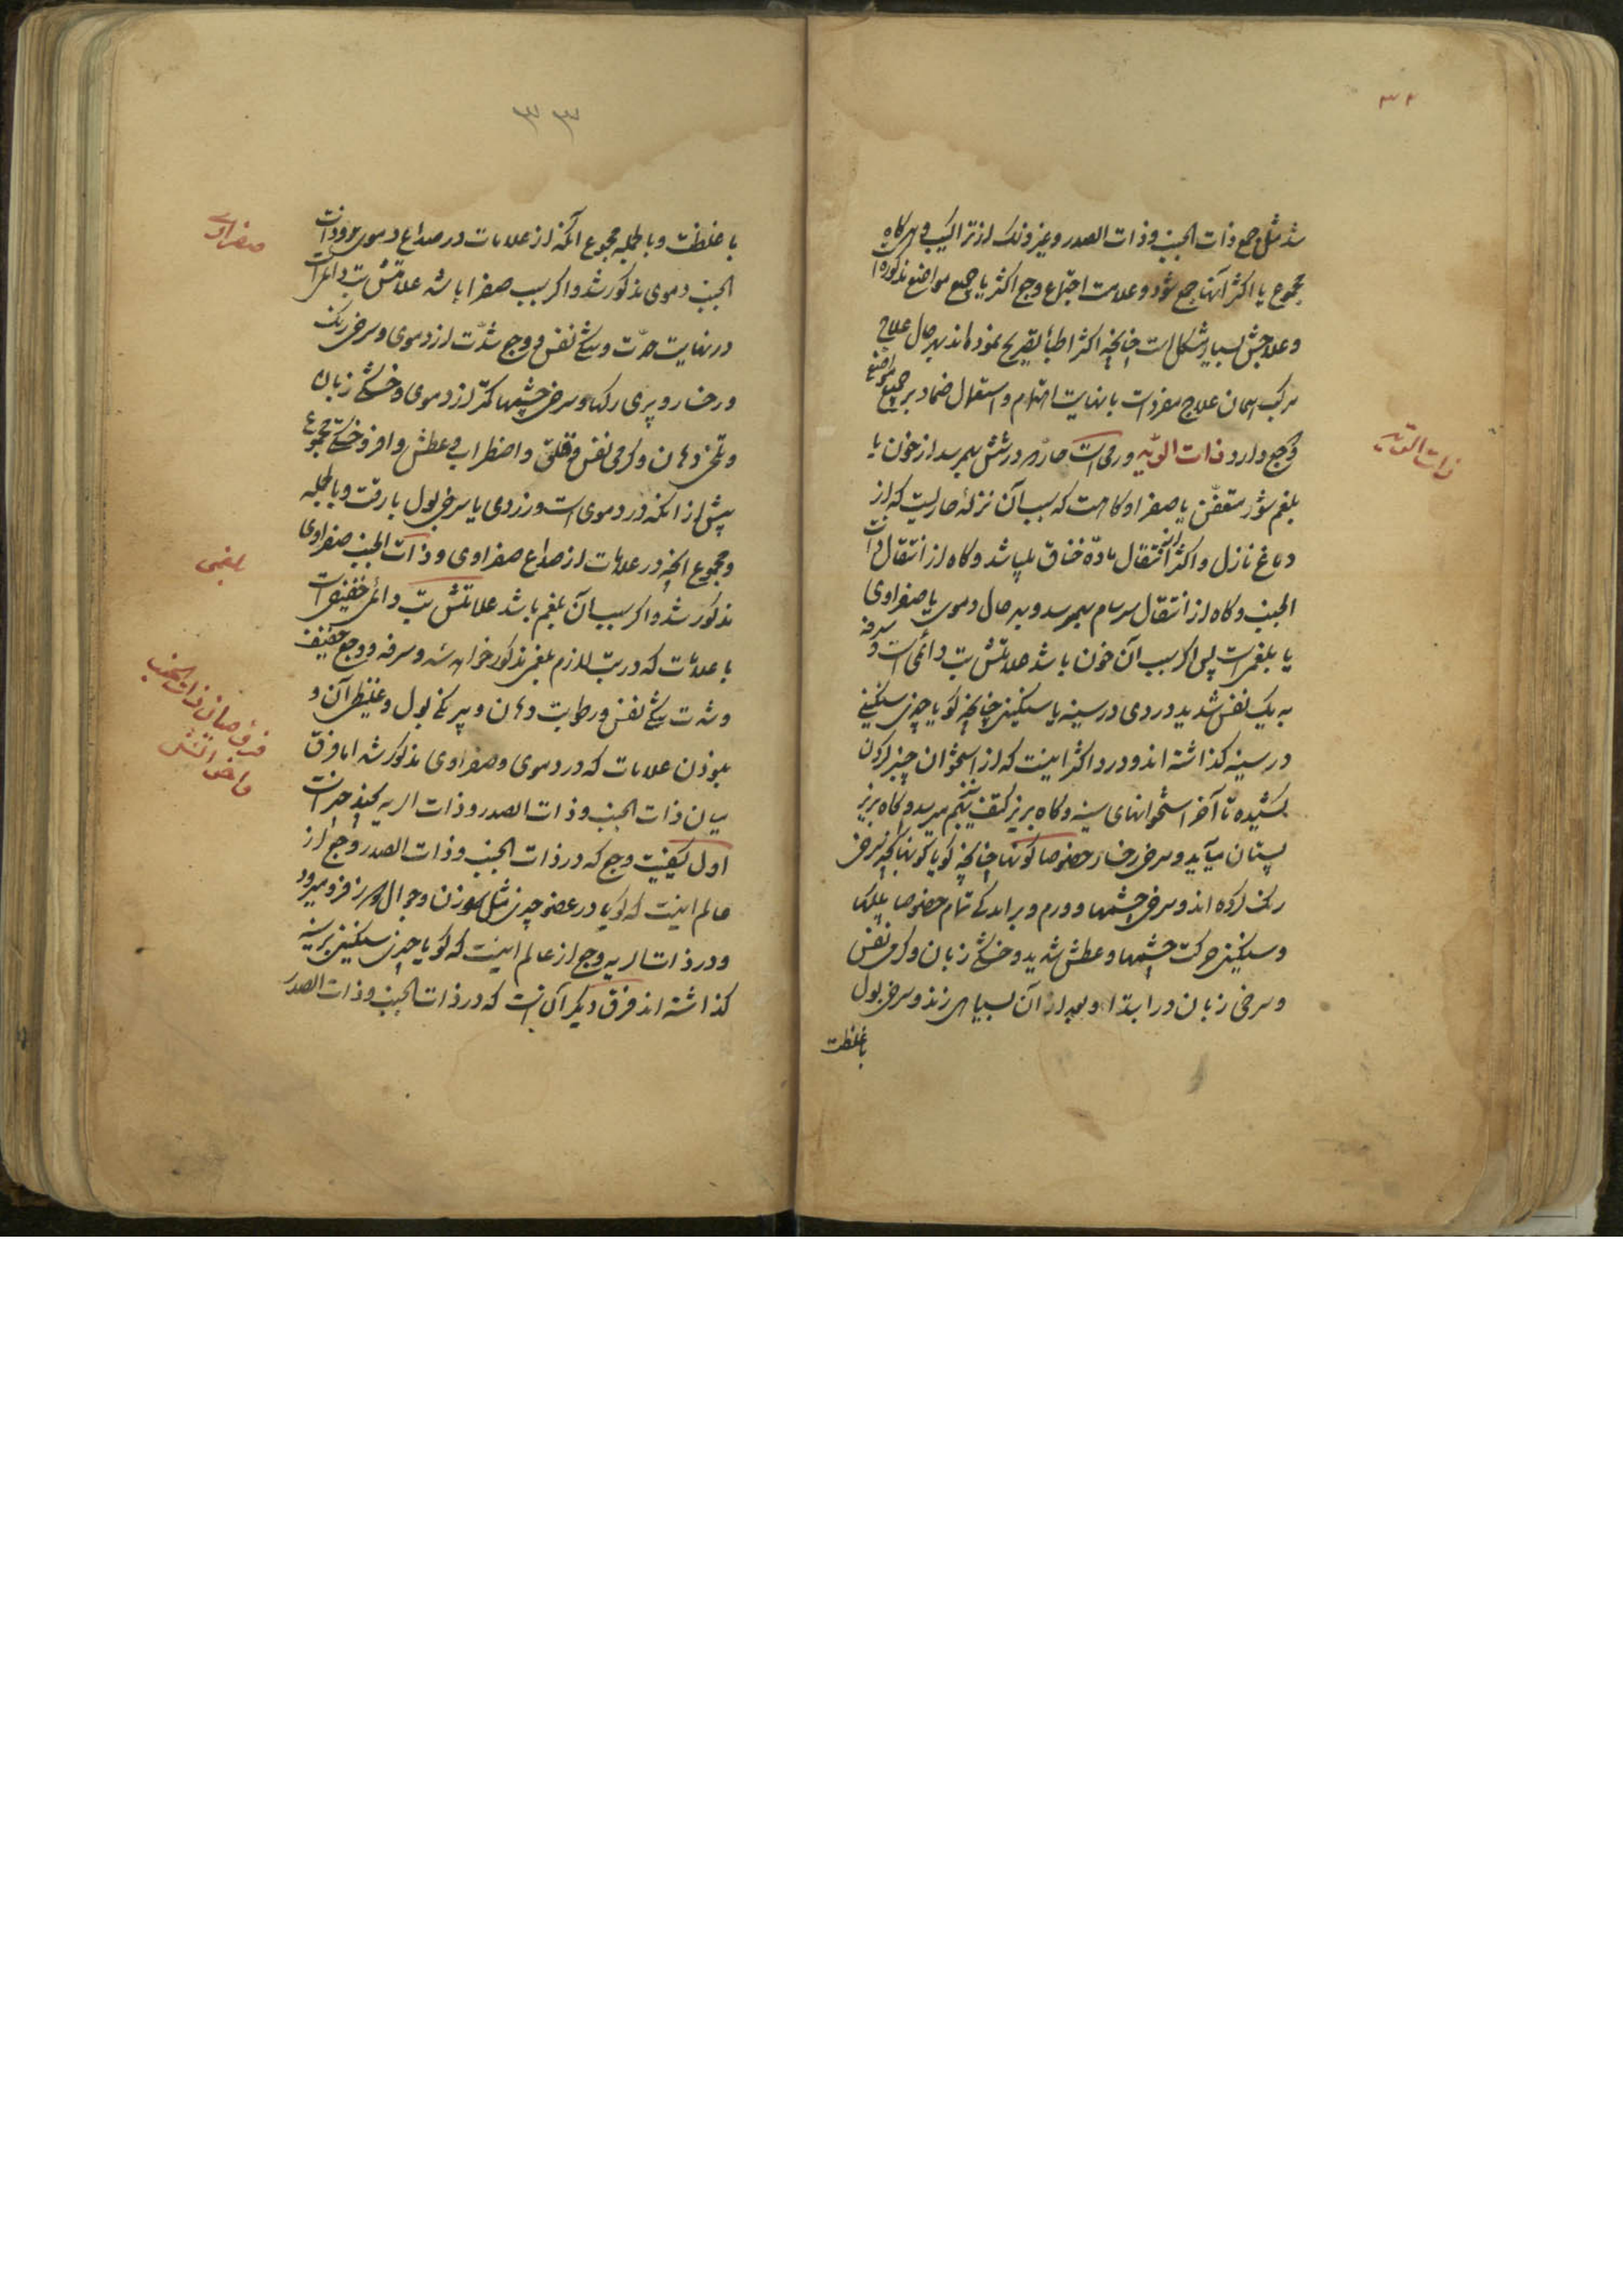 ۳۲
شد مثل جمع ذات الجنب و ذات الصدر و غیر ذلک از تراکیب و هرگاه
مجموع یا اکثر آنها جمع شود و علامت اجتماع وجع اکثر یا جمیع مواضع مذکوره
و علاجش بسیار مشکل است چنانچه اکثر اطبا تصریح نموده‌اند بهر حال علاج
مرکب همان علاج مفردات با نهایت اهتمام و استعمال ضماد بر جمیع مواضع
وجع دارد ذات الریه ورمی است حار که در شش بهم رسد از خون یا
ذات الریه
بلغم شور متعفن یا صفرا و گاه هست که سبب آن نزله حاریست که از
دماغ نازل و اکثر از انتقال ماده خناق میباشد و گاه از انتقال ذات
الجنب و گاه از انتقال سرسام بهم رسد و بهر حال دموی یا صفراوی
یا بلغمی است پس اگر سبب آن خون باشد علامتش تب دائمی است و سرفه
به یک نفس شدید دردی در سینه با سنگینی چنانچه گویا چیز سنگینی
در سینه گذاشته‌اند و درد اکثر اینست که از استخوان چنبر گردن
کشیده تا آخر استخوانهای سینه و گاه بزیر کتف نیز هم میرسد و گاه بزیر
پستان میآید و سرخی رخسار خصوصا گونها چنانچه گویا گونها را بسرخی
رنگ کرده‌اند و سرخی چشمها و ورم و برآمدگی تمام خصوصا پلکها
و سنگینی حرکت چشمها و عطش شدید و خشکی زبان و گرمی نفس
و سرخی زبان در ابتدا و بعد از آن بسیاهی زند و سرخی بول
با غلظت
۳۳
با غلظت و بالجمله مجموع آنکه از علامات در صداع دموی و ذات
صفراوی
الجنب دموی مذکور شد و اگر سبب صفرا باشد علامتش تب دائمی است
در نهایت حدت و تنگی نفس و وجع شدت از دموی و سرخی رنگ
و رخسار و پری رگها و سرخی چشمها کمتر از دموی و خشکی زبان
و تلخی دهان و گرمی نفس و قلق و اضطراب و عطش وافر و خشکی مجموع
بیش از آنکه در دموی است و زردی یا سرخی بول با رقت و بالجمله
و مجموع آنچه در علامات از صداع صفراوی و ذات الجنب صفراوی
بلغمی
مذکور شد و اگر سبب آن بلغم باشد علامتش تب دائمی خفیف است
با علامات که در تب لازم بلغمی مذکور خواهد شد و سرفه و وجع خفیف
و شدت تنگی نفس و رطوبت دهان و بیرنگی بول و غلیظی آن و
نبودن علامات که در دموی و صفراوی مذکور شد اما فرق
فرق میان ذات الجنب
میان ذات الجنب و ذات الصدر و ذات الریه بچند چیز است
اول کیفیت وجع که در ذات الجنب و ذات الصدر وجع از
عالم اینست که گویا در عضو چیزی مثل سوزن و جوال‌دوز فرو میرود
و در ذات الریه وجع از عالم اینست که گویا چیز سنگینی بر سینه
گذاشته‌اند فرق دیگر آن است که در ذات الجنب و ذات الصدر